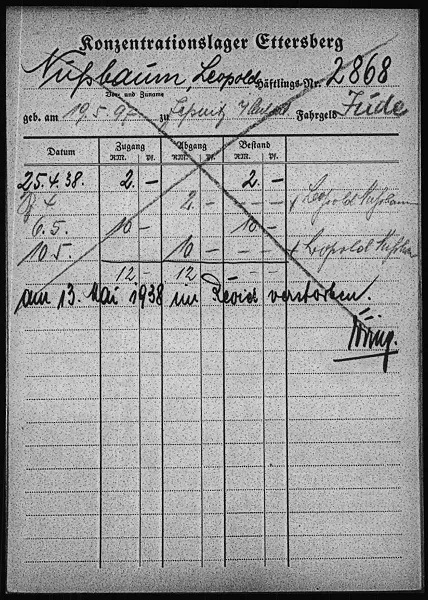 Konzentrationslager Ettersberg
Nußbaum, Leopold Häftlings-Nr. 2868
Vor- und Zuname
geb. am 19.5.97 zu Fahrgeld Jude
Datum Zugang Abgang Bestand
RM. Pf. RM. Pf. RM. Pf.
25.4.38. 2.- 2.-
4 2 - - - - Leopold Nußbaum
6.5. 10 - 10 -
10.5. 10 - - - - Leopold Nußbaum
12 - 12 -
am 13. Mai 1938 im Revier verstorben.